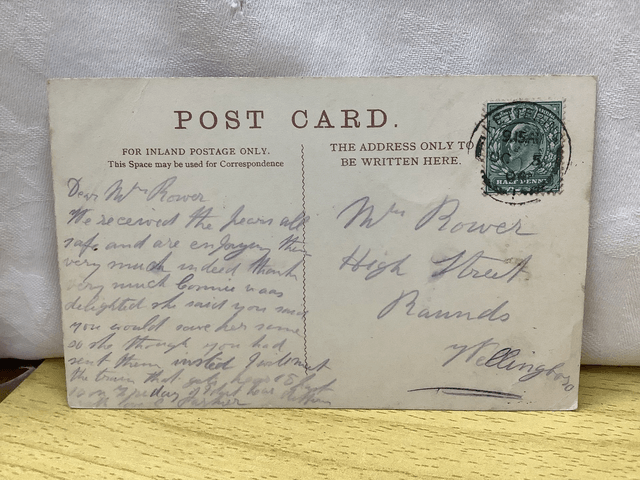 POST CARD.
FOR INLAND POSTAGE ONLY.
This Space may be used for Correspondence
THE ADDRESS ONLY TO
BE WRITTEN HERE.
HALF PENNY
Dear Mrs Rower
We received the pears all
safe and are enjoying them
very much indeed thank
very much Connie was
delighted she said you said
you would save her some
so she though you had
sent them
the train that gets
Mrs Rower
High Street
Raunds
Wellingboro